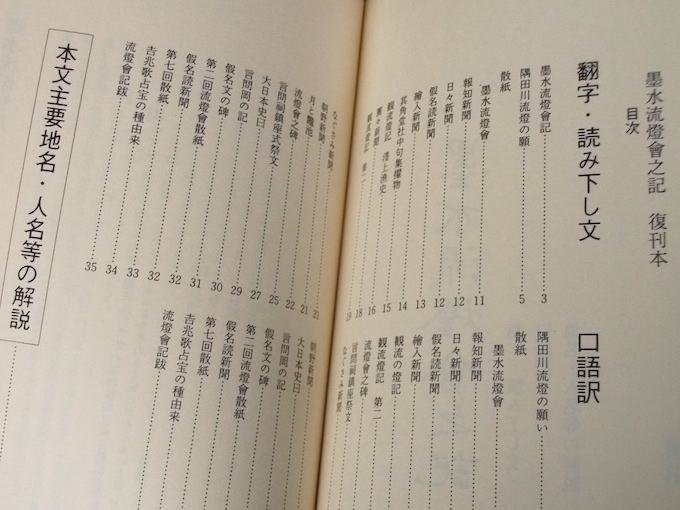 墨水流燈會之記 復刊本
目次
翻字・読み下し文
墨水流燈會記 3
隅田川流燈の願 5
散紙
墨水流燈會 11
報知新聞 12
日々新聞 12
假名読新聞 13
繪入新聞 14
其角堂社中句集摺物 15
観流燈記 淺上漁史 16
團々新聞 18
観流燈記 第二 19
なぐさみ新聞 21
朝野新聞 21
流燈會之碑 25
言問祠鎮座式祭文 27
大日本史曰 29
言問岡の記 30
假名文の碑 31
第二回流燈會散紙 32
假名読新聞 32
第七回散紙 33
吉兆歌占宝の種由来 34
流燈會記跋 35
口語訳
隅田川流燈の願い
散紙
墨水流燈會
報知新聞
日々新聞
假名読新聞
繪入新聞
観流の燈記
観流燈記 第二
流燈會之碑
言問祠鎮座祭文
なぐさみ新聞
朝野新聞
大日本史曰
言問岡の記
假名文の碑
第二回流燈會散紙
假名読新聞
第七回散紙
吉兆歌占宝の種由来
流燈會記跋
本文主要地名・人名等の解説